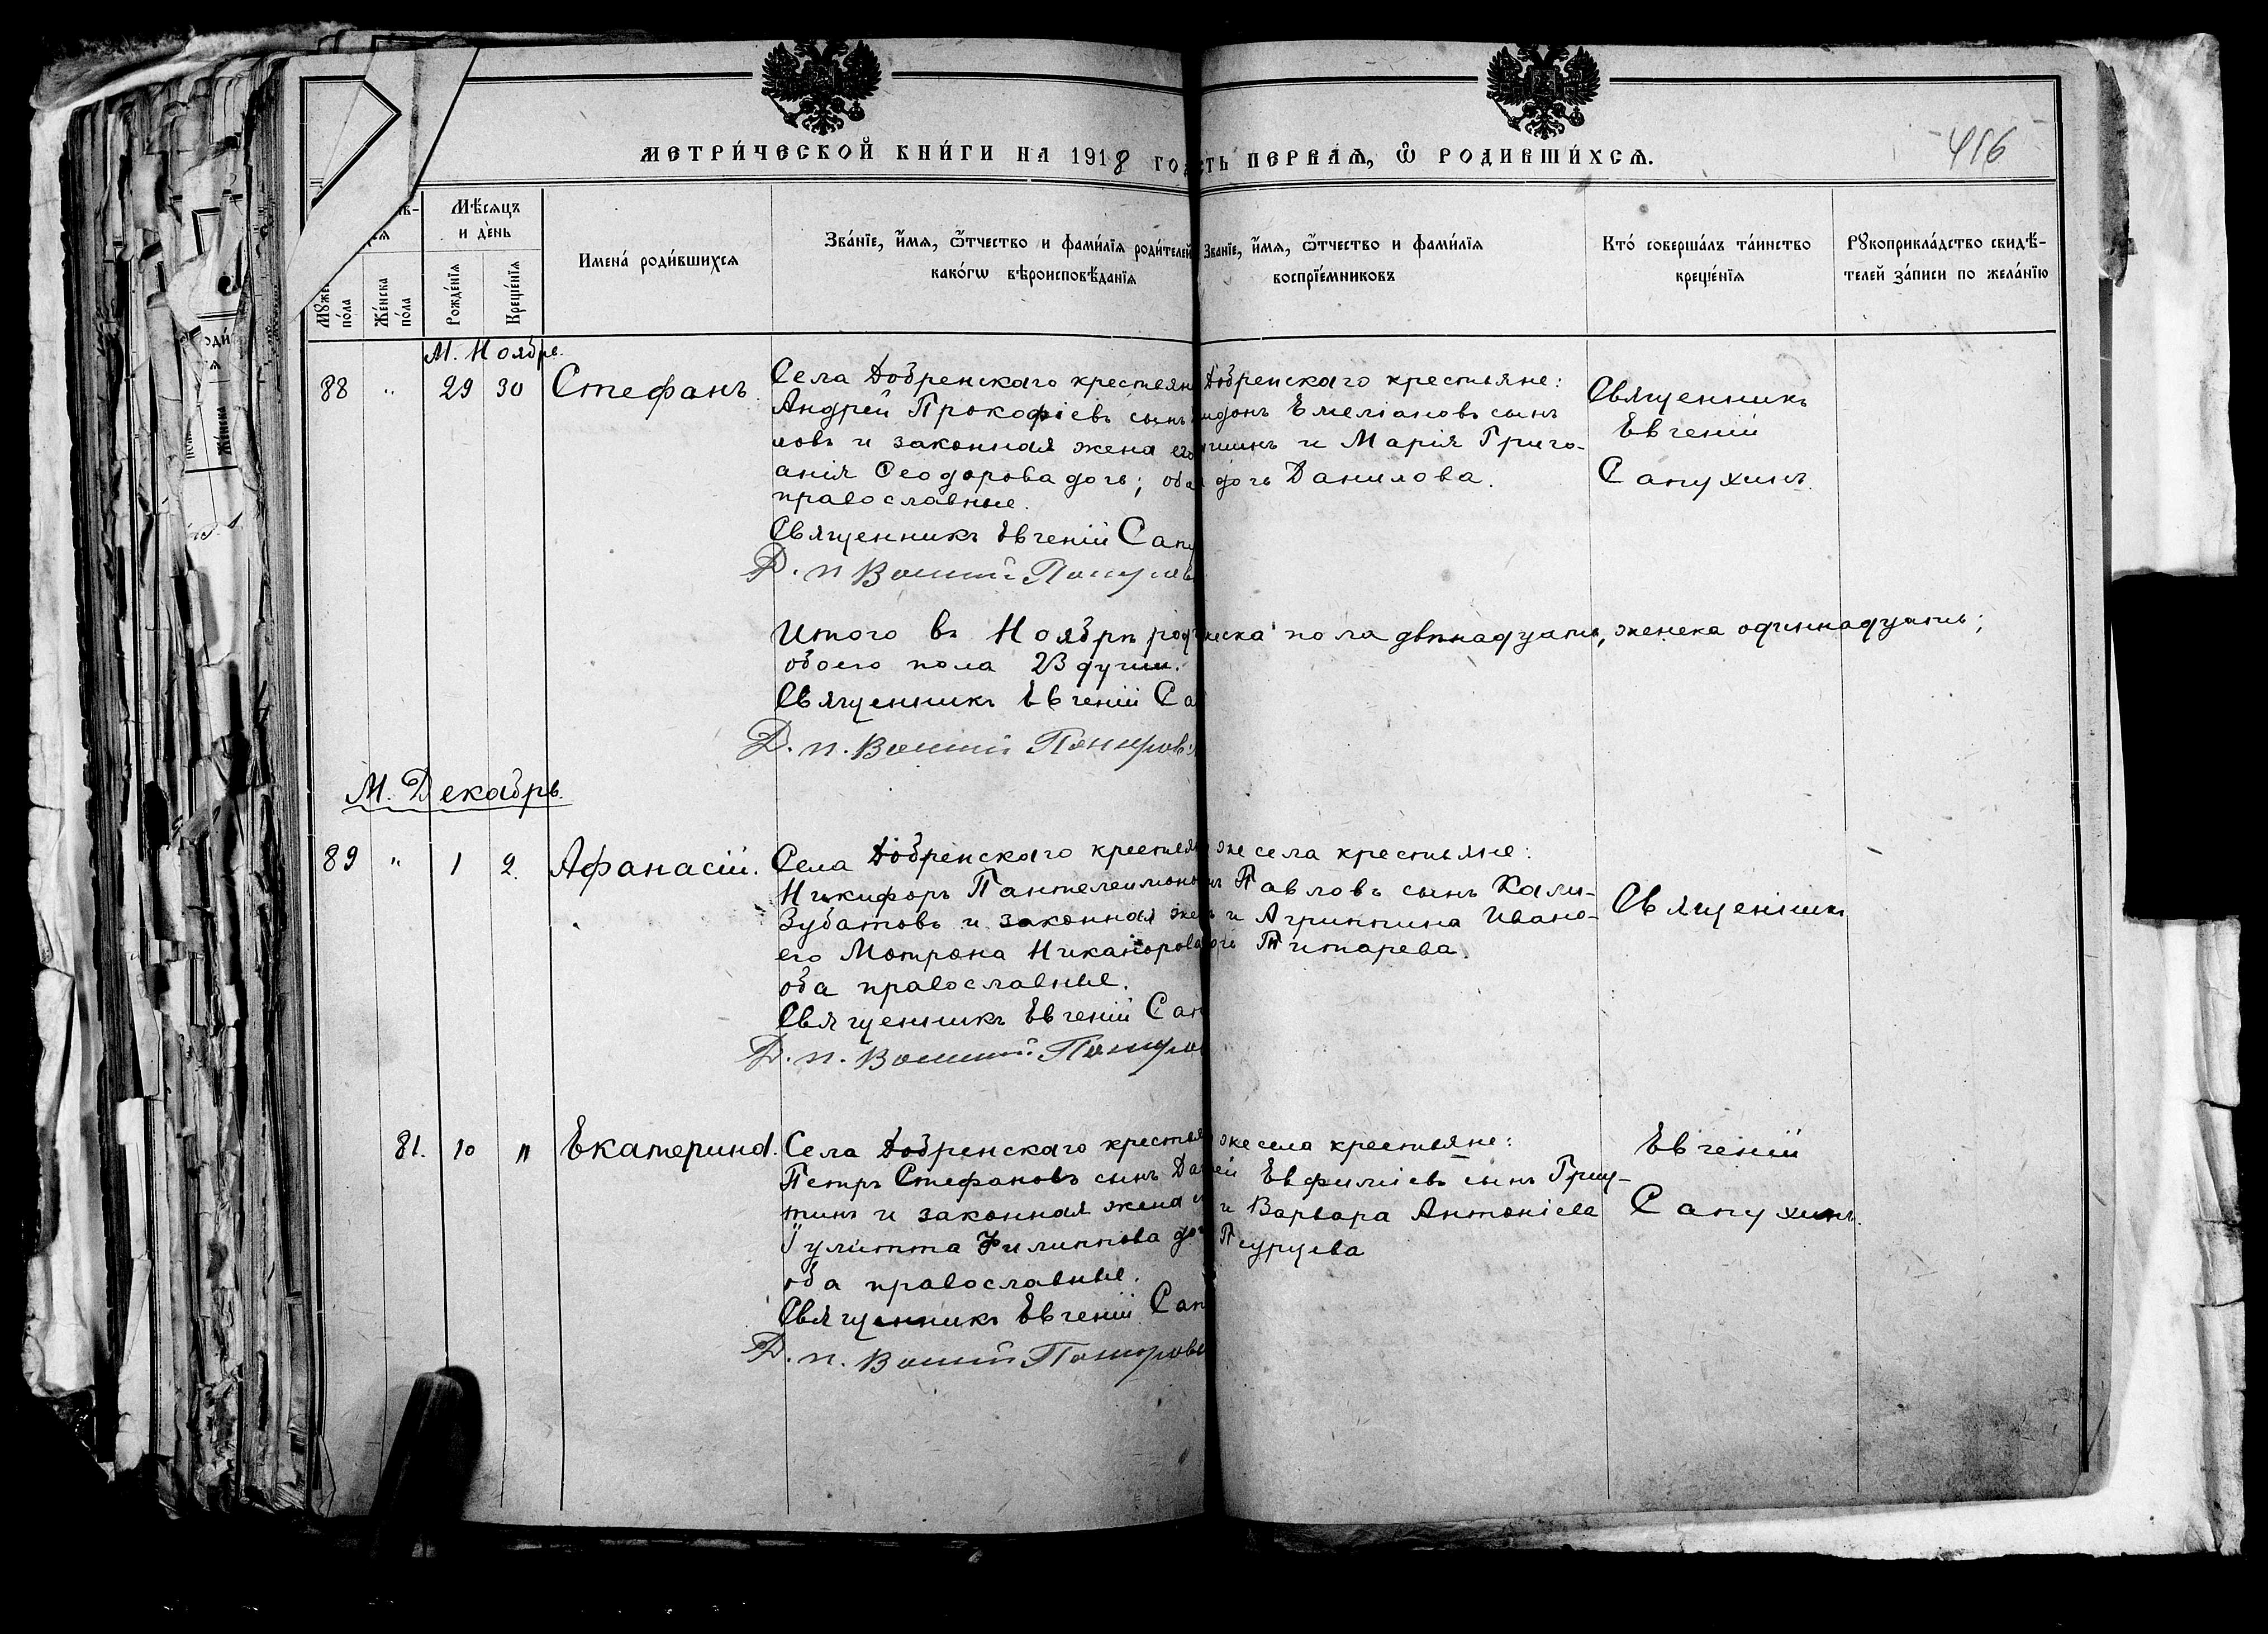 МЕТРИ́ЧЕСКОЙ КНИ́ГИ НА 1918 ГО
СТЬ ПЕРВАѦ, Ѿ РОДИВШИ́ХСѦ.
416
Мѣсяцъ
и де́нь
Рожде́нїѧ
Креще́нїѧ
Же́нска
по́ла
по́ла
Имена́ роди́вшихсѧ
Зва́нїе, и҆́мѧ, ѻ҆́тчество и фами́лїѧ роди́телей
како́гѡ вѣроисповѣ́данїѧ
Зва́нїе, и҆́мѧ, ѻ҆́тчество и фами́лїѧ
воспрїе́мниковъ
Кто́ соверша́лъ та́инство
креще́нїѧ
Рꙋкоприкла́дство свидѣ́-
телей за́писи по жела́нїю
М. Ноябрь.
88 " 29 30 Стефанъ.
Села Добренскаго крестьян
Андрей Прокофіевъ сынъ
ловъ и законная жена его
анія Ѳеодорова дочь; оба
православные.
Священникъ Евгеній Сапу
Добренскаго крестьяне:
идонъ Емеліановъ сынъ
шинъ и Марія Григо-
дочь Данилова.
Священникъ
Евгеній
Сапухинъ.
Д. п.
Итого въ Ноябрѣ род
жеска пола двѣнадцать, женска одиннадцать;
обоего пола 23 души.
Священникъ Евгеній Са
Д. п.
М. Декабрь.
89 " 1 2. Афанасій.
Села Добренскаго крестьян
Никифоръ Пантелеимоно
Зубатовъ и законная жен
его Мотрона Никанорова
оба православные.
Священникъ Евгеній Сап
Д. п.
же села крестьяне:
Павловъ сынъ Кали-
и Агриппина Ивано-
Титарева.
Священникъ
81. 10 " Екатерина.
Села Добренскаго крестья
Петръ Стефановъ сынъ Да
тинъ и законная жена
Іулитта Филиппова доч
оба православные.
Священникъ Евгеній Сап
Д. п.
же села крестьяне:
Евфиміевъ сынъ Грищ-
и Варвара Антоніева
Евгеній
Сапухинъ.